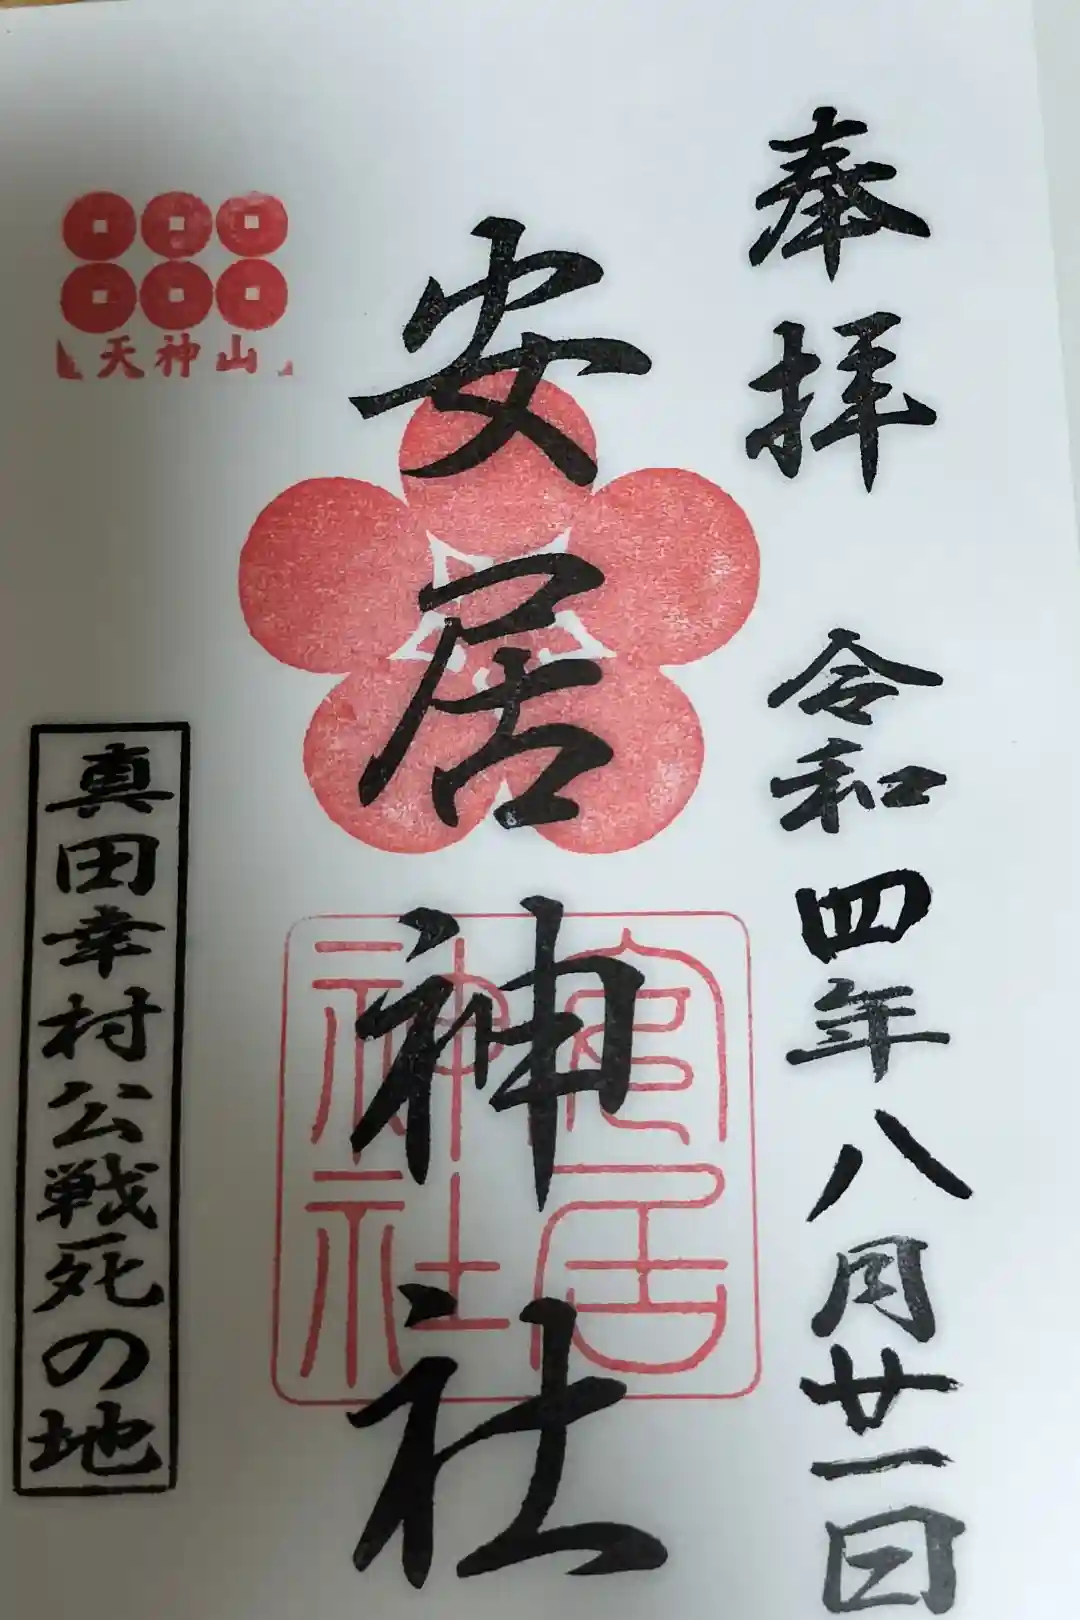 奉拝 令和四年八月廿一日
安居神社
安居神社
天神山
真田幸村公戦死の地